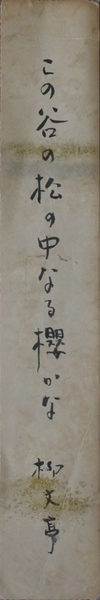 この谷の松の中なる櫻かな
柳文亭